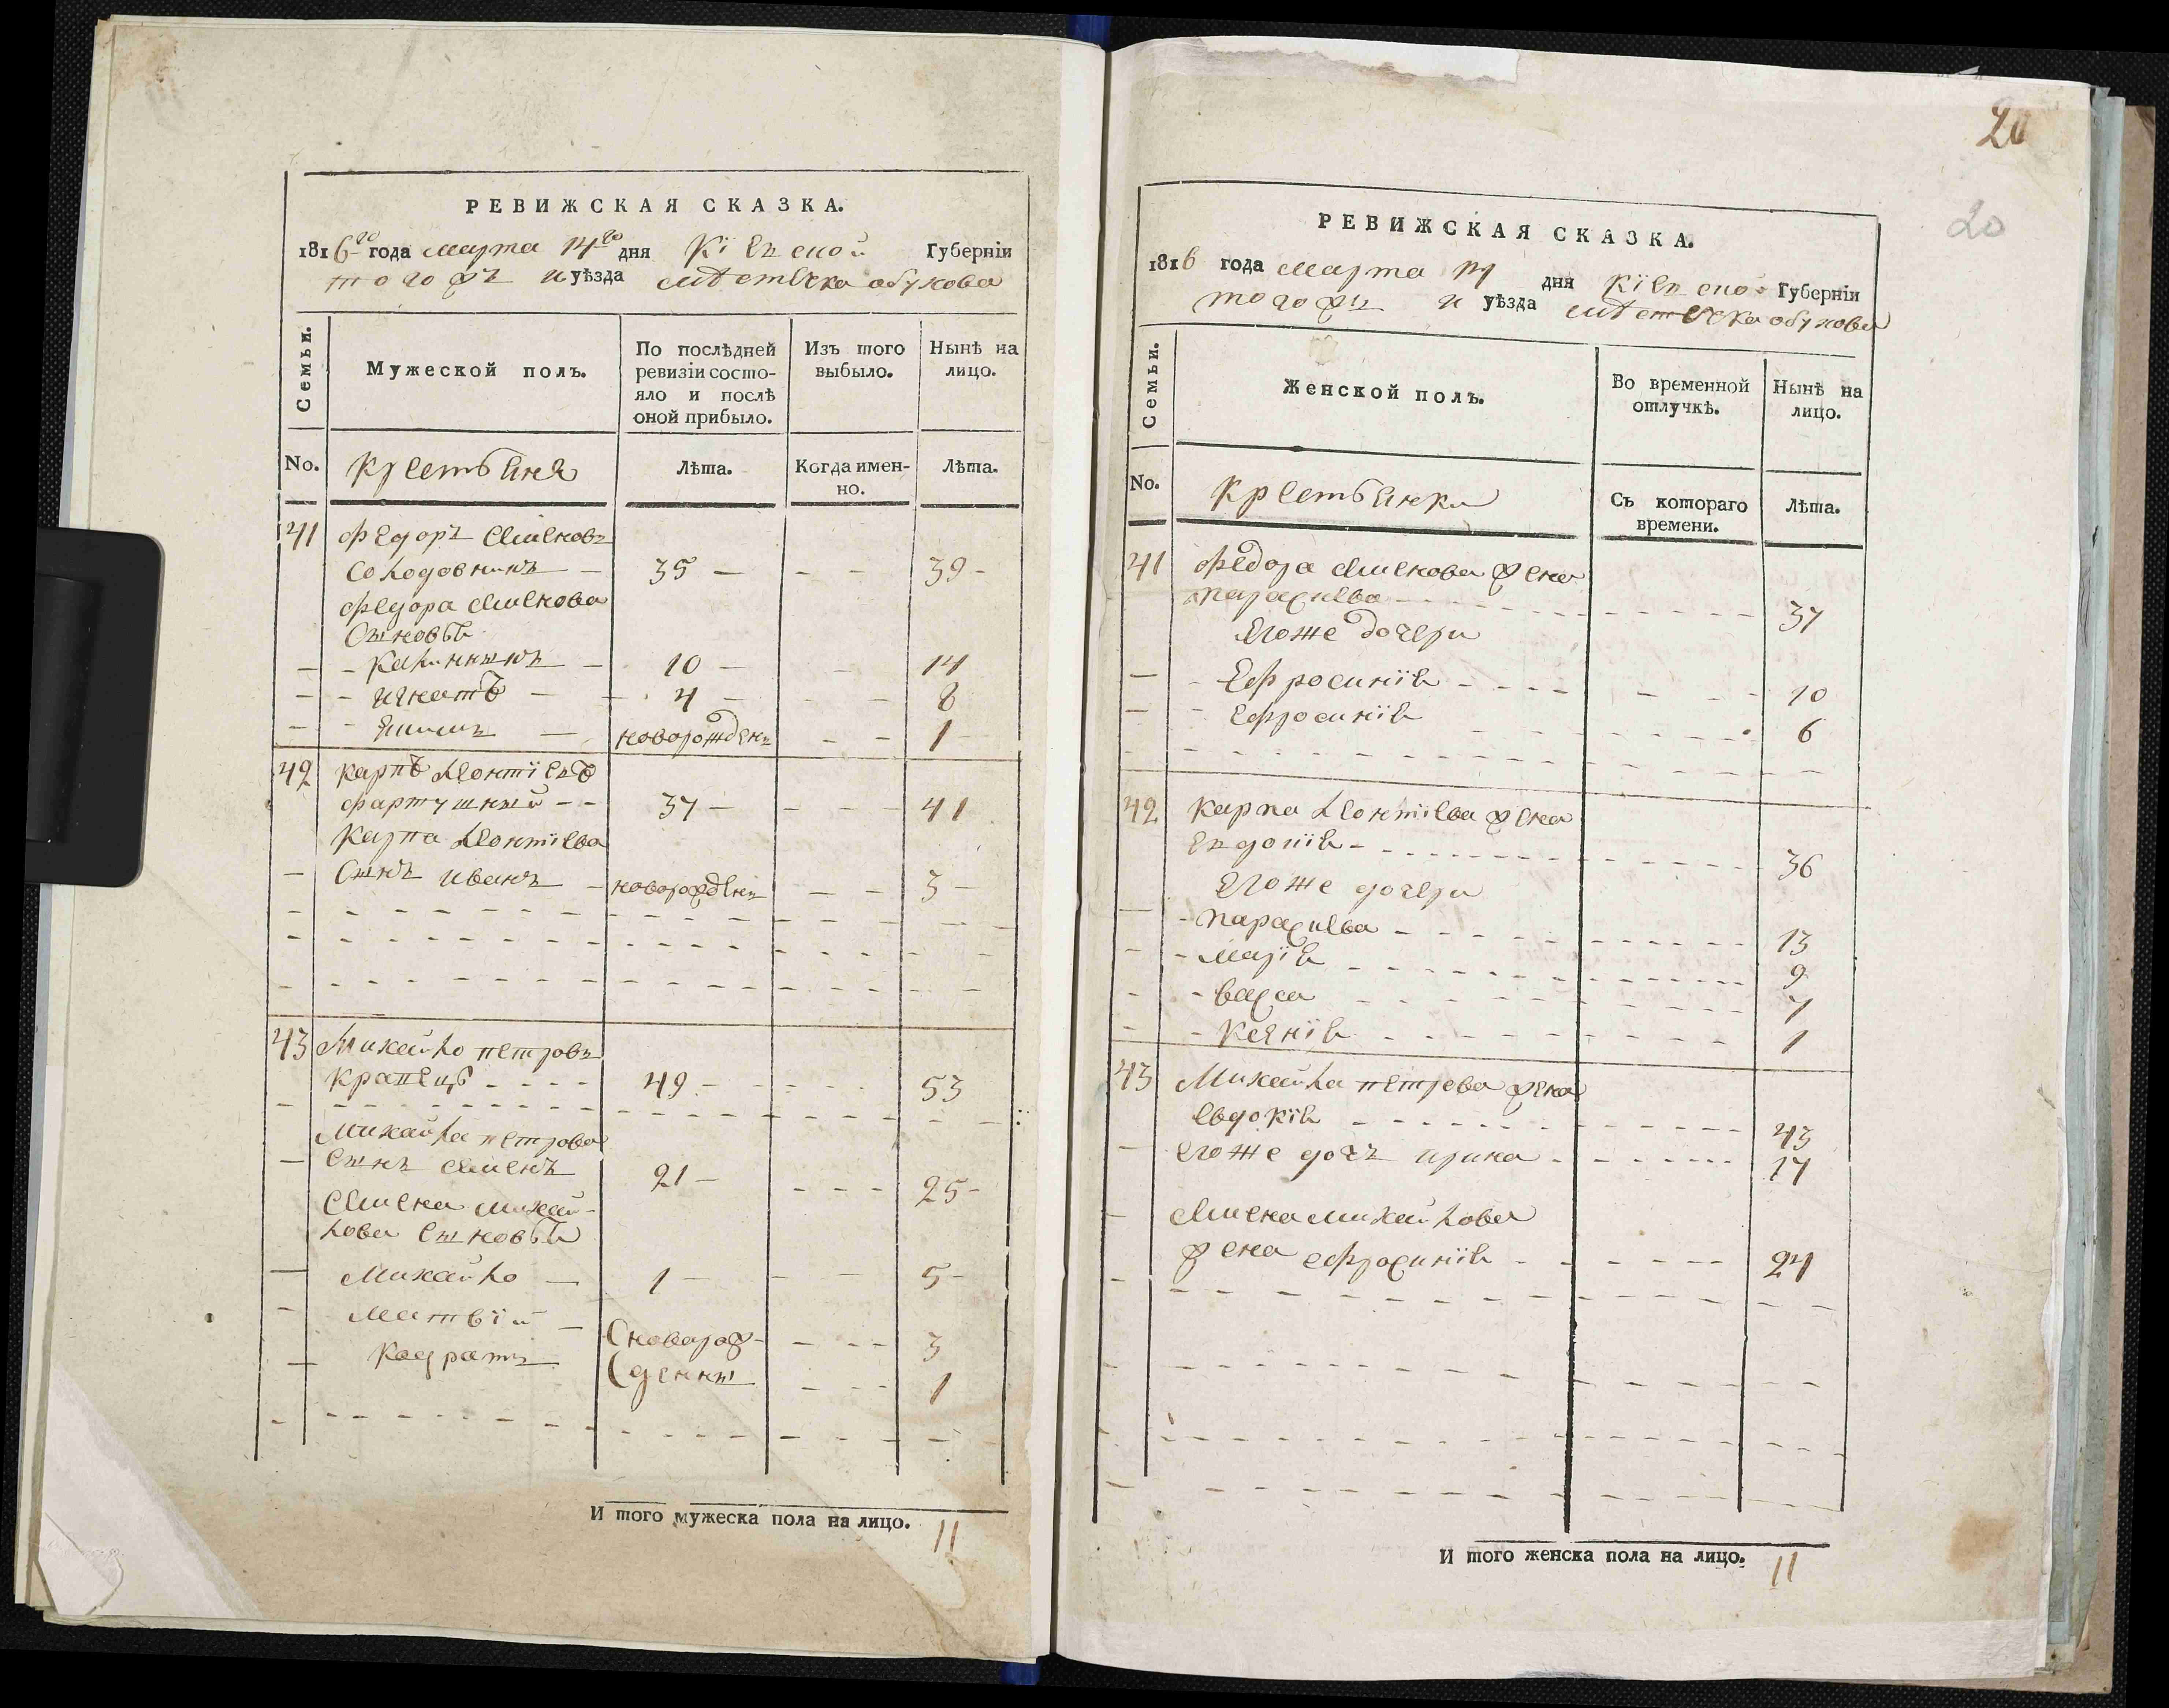 20
20
РЕВИЖСКАЯ СКАЗКА.
1816го года марта 14го дня Кіевской Губерніи
того жъ и уѣзда мѣстечка обухова
Семьи.
Мужеской полъ.
По послѣдней ревизіи состо-
яло и послѣ
оной прибыло.
Изъ того
выбыло.
Нынѣ на
лицо.
No. крестьяня Лѣта. Когда имен-
но. Лѣта.
41 федоръ Семеновъ
Солодовникъ — 35 — - - 39 -
федора Семенова
Сыновья
— - Калинныкъ — 10 — - 14
- - игнатъ — 4 — - - 8
- - Якимъ — новорожденъ - - 1
42 карпъ Леонтіевъ
фартушный - - 37 — - - - 41
Карпа Леонтіева
— Сынъ иванъ — новорожденъ — - 3 -
43 Михайло петровъ
кравецъ - - - - 49 - - - - 53
Михайла петрова
— Сынъ Семенъ 21 — - - - 25 -
Семена михай-
лова Сыновья
— Михайло — 1 — - - 5 -
- Матвій — (новорож- - - - 3
— Кодратъ (денны - - - 1
И того мужеска пола на лицо. 11
РЕВИЖСКАЯ СКАЗКА.
1816 года марта 14 дня Кіевской Губерніи
того жъ и уѣзда мѣстечка обухова
Семьи.
Женской полъ.
Во временной
отлучкѣ.
Нынѣ на
лицо.
No. крестьянки Съ котораго
времени. Лѣта.
41 федора Семенова жена
параскива - - - - 37
Егоже дочери
— - Ефросинія - - - - 10
— - Ефросинія - - - - 6
42 карпа Леонтіева жена
Евдокія - - - - 36
Егоже дочери
— - параскива - - - - 13
- - марія - - - - 9
- - васса - - - - 7
- - Ксенія - - - - 1
43 Михайла петрова жена
евдокія - - - - 43
— егоже дочь ирина - - - - 17
— Семена михайлова
жена ефросинія - - - - 24
И того женска пола на лицо. 11